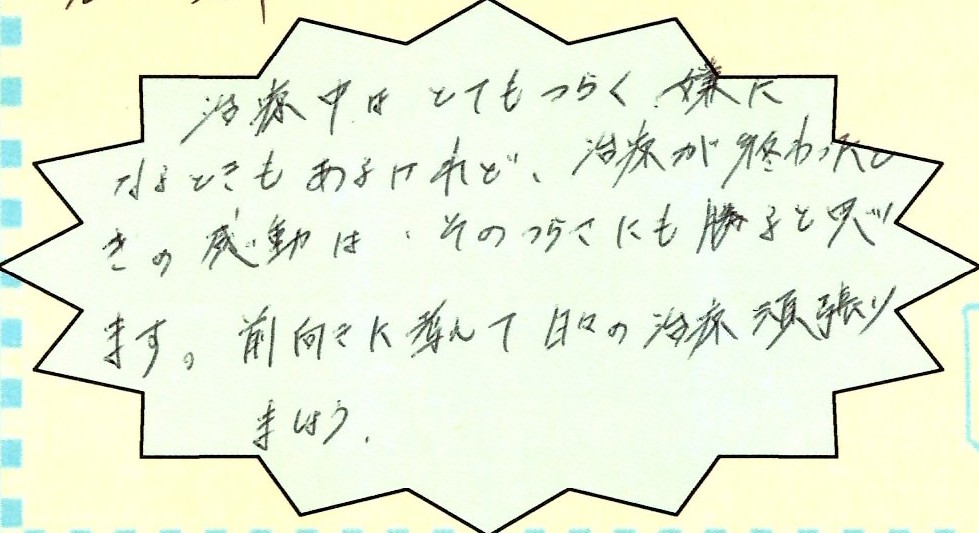 治療中は とてもつらく 嫌に
なるときもあるけれど、治療が終わったと
きの感動は、そのつらさにも勝ると思い
ます。前向きに考えて日々の治療頑張り
ましょう.